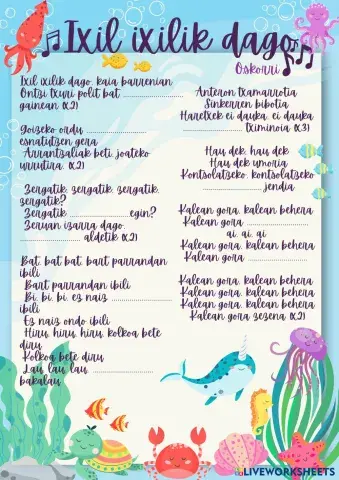 Ixil ixilik dago
Oskorri
Ixil ixilik dago, kaia barrenian
Ontzi txuri polit bat ....................
gainean (x2)
Goizeko ordu ....................
esnatutzen gera
Arrantzaliak beti, joateko
urrutira. (x2)
Zergatik, zergatik, zergatik,
zergatik?
Zergatik .................... egin?
Zeruan izarra dago,
.................... aldetik (x2)
Bat, bat bat, bart parrandan
ibili
Bart parrandan ibili
Bi, bi, bi, ez naiz ....................
ibili
Ez naiz ondo ibili
Hiru, hiru, hiru, kolkoa bete
diru
Kolkoa bete diru
Lau, lau, lau, ....................
bakalau
Anteron txamarrotia
Sinkerren bibotia
Haretxek ei dauka, ei dauka
.................... tximinoia (x3)
Hau dek, hau dek
Hau dek umoria
Kontsolatzeko, kontsolatzeko
.................... jendia
Kalean gora, kalean behera
Kalean gora ....................
ai, ai, ai
Kalean gora, kalean behera
Kalean gora ....................
Kalean gora, kalean behera
Kalean gora, kalean behera
Kalean gora, kalean behera
Kalean gora zezena (x2)
LIVEWORKSHEETS